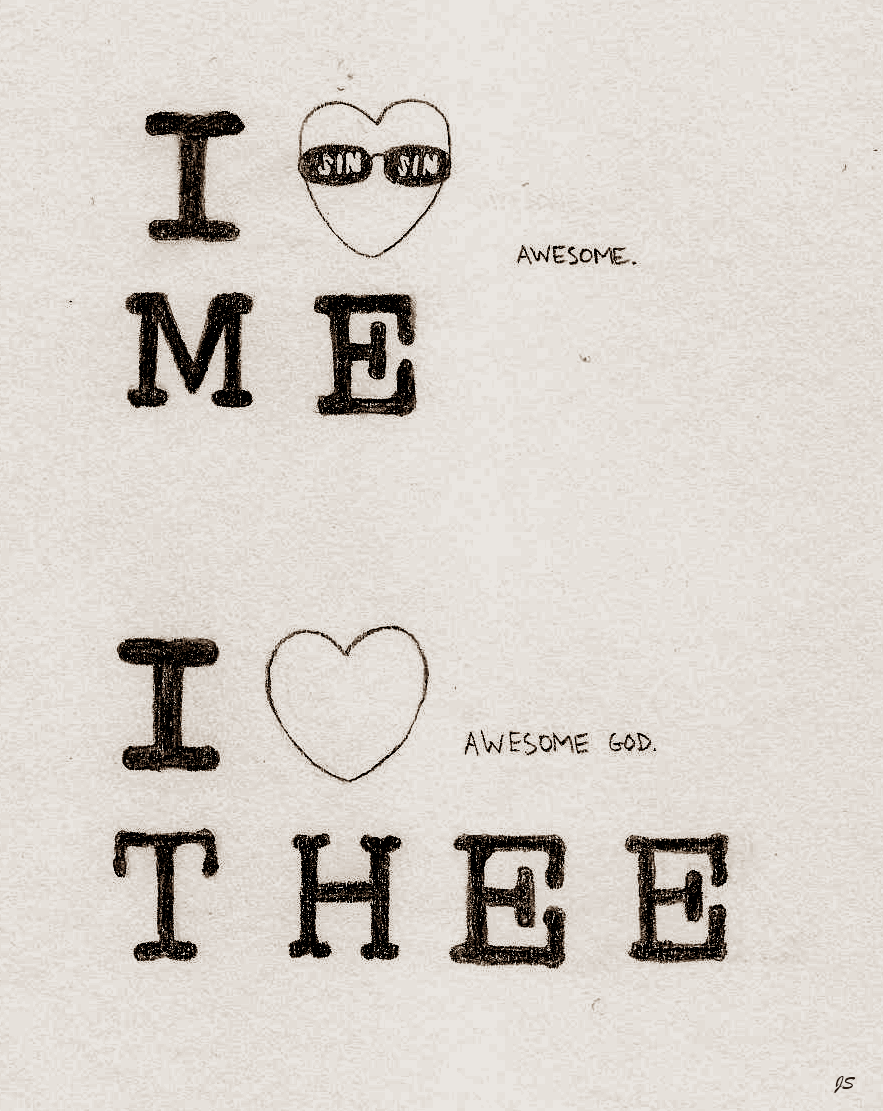 I
SIN SIN
AWESOME.
ME
I
AWESOME GOD.
THEE
JS